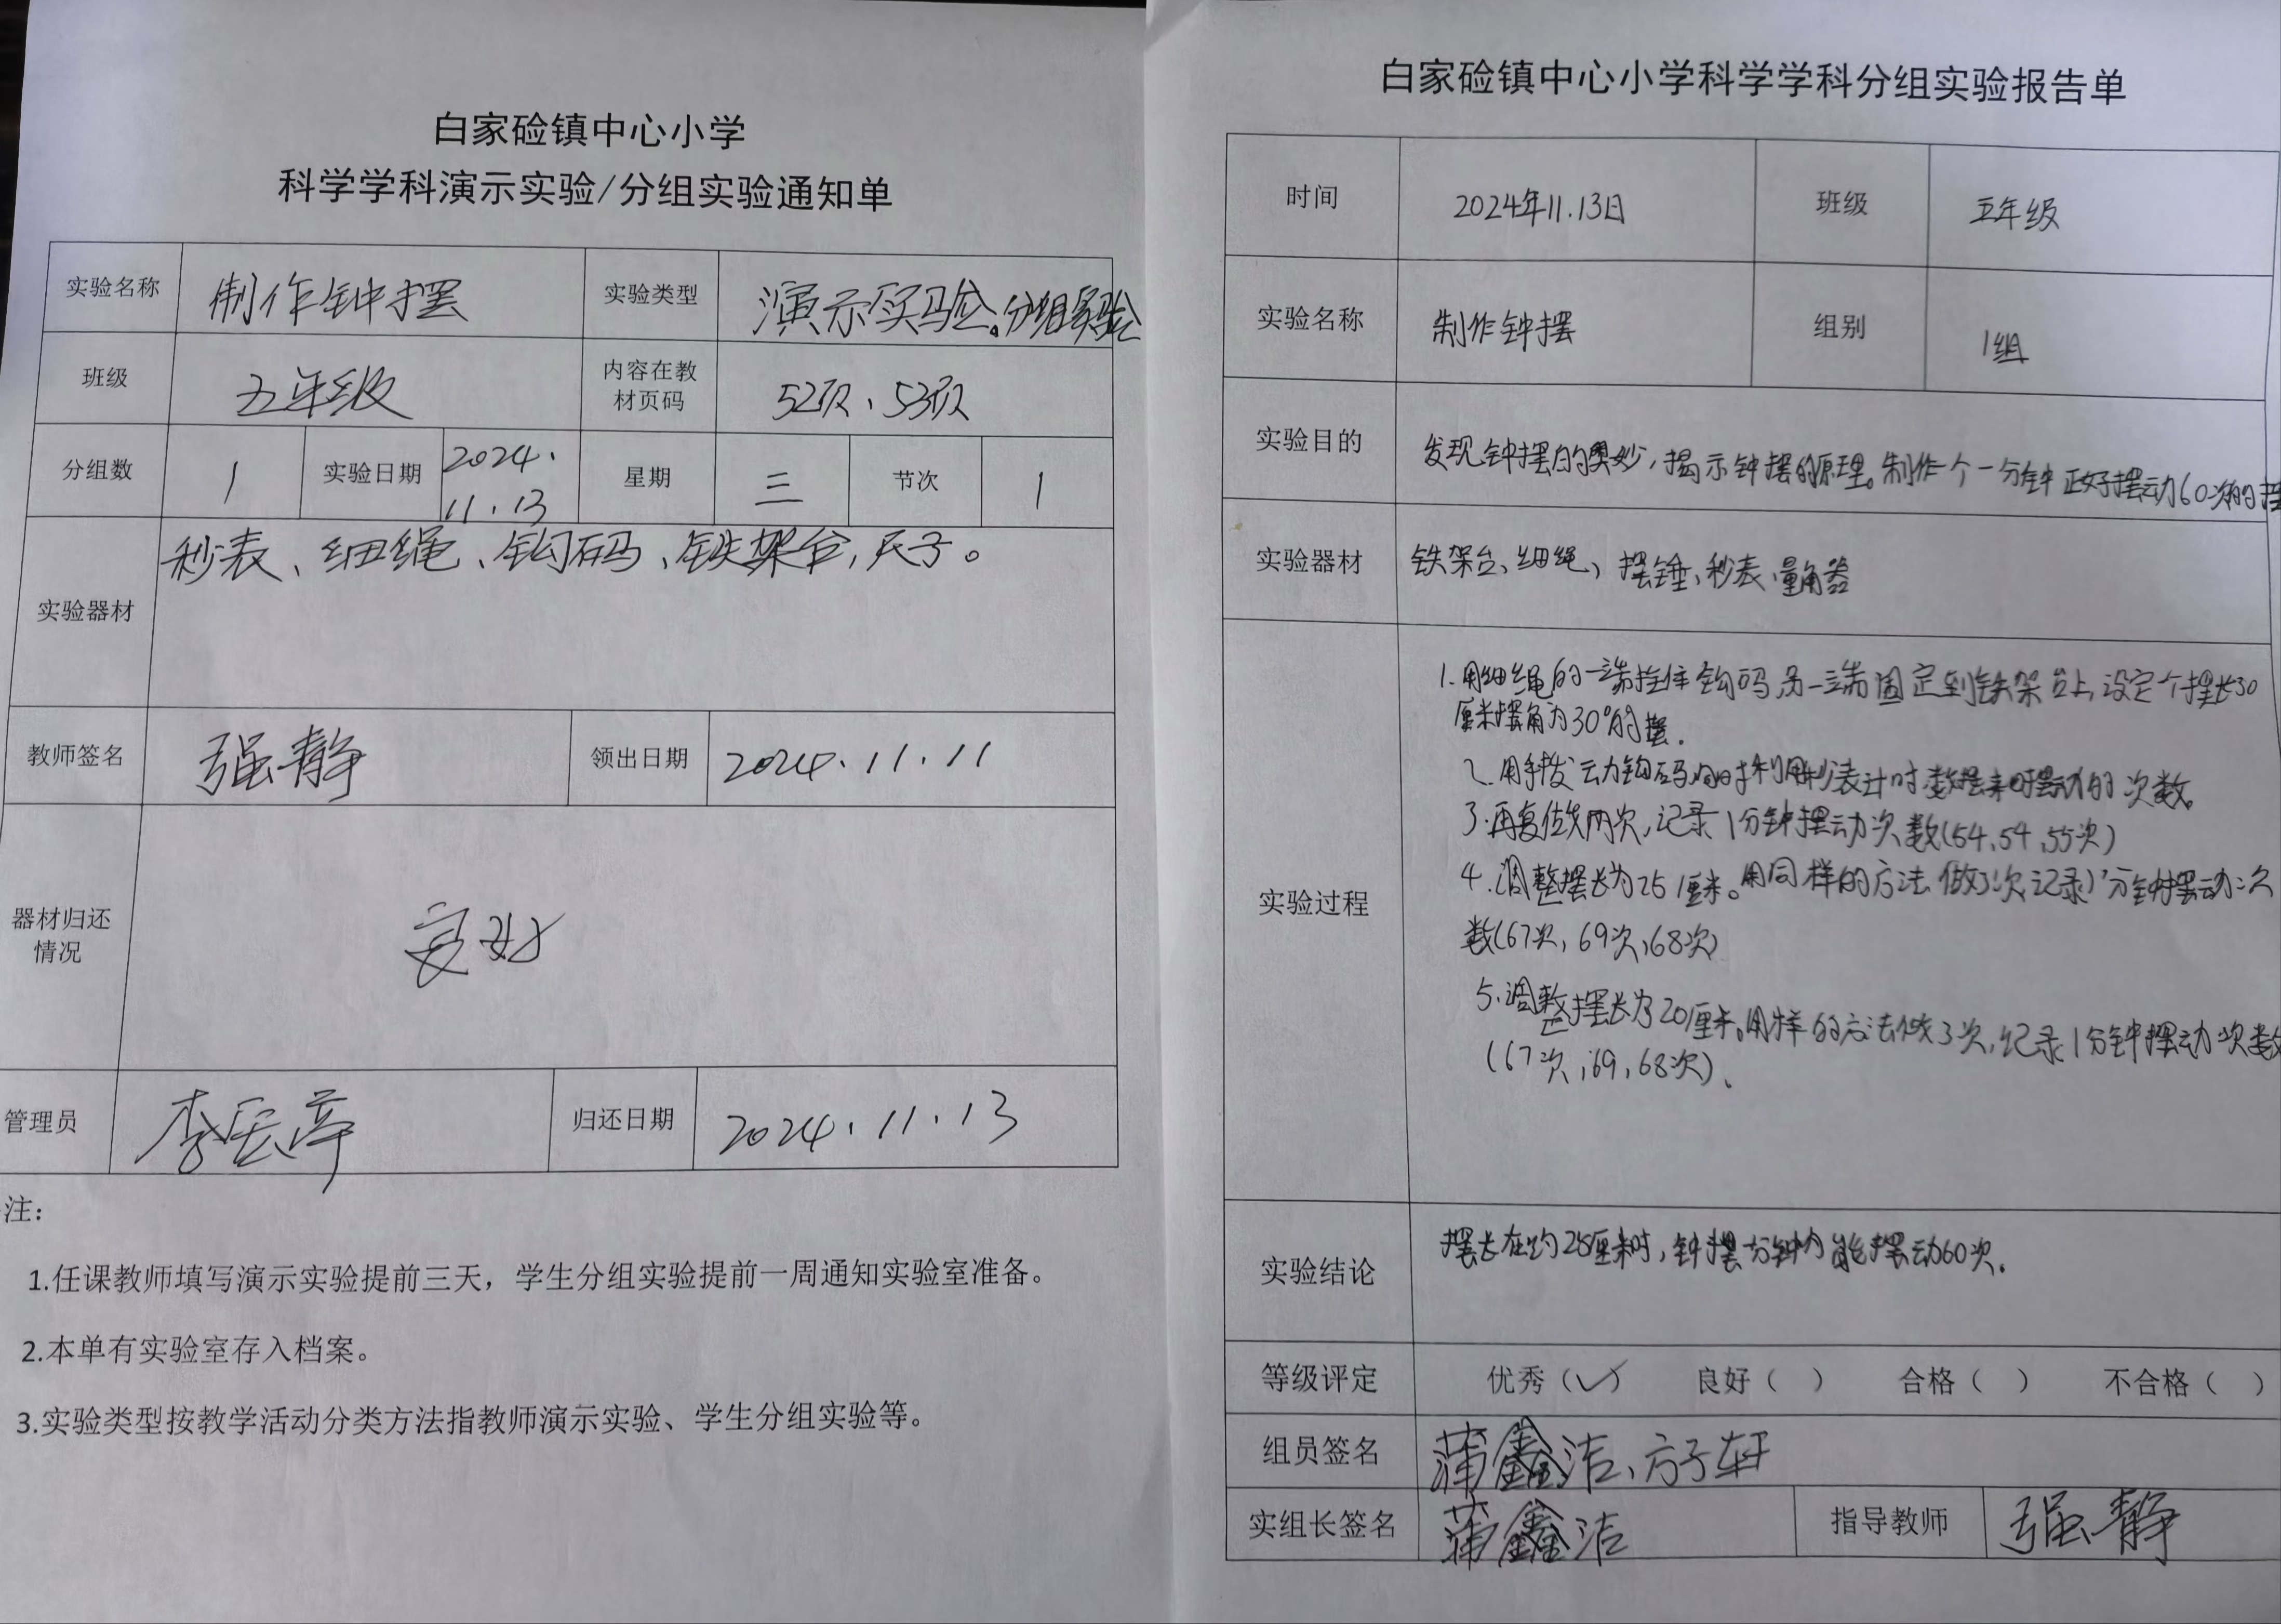 白家硷镇中心小学
科学学科演示实验/分组实验通知单
实验名称 制作钟摆 实验类型 演示实验、分组实验
班级 五年级 内容在教材页码 52页、53页
分组数 1 实验日期 2024.11.13 星期 三 节次 1
实验器材 秒表、细绳、钩码、铁架台,尺子。
教师签名 强静 领出日期 2024.11.11
器材归还情况 完好
管理员 李 归还日期 2024.11.13
注:
1.任课教师填写演示实验提前三天,学生分组实验提前一周通知实验室准备。
2.本单有实验室存入档案。
3.实验类型按教学活动分类方法指教师演示实验、学生分组实验等。
白家硷镇中心小学科学学科分组实验报告单
时间 2024年11.13日 班级 五年级
实验名称 制作钟摆 组别 1组
实验目的 发现钟摆的奥妙,揭示钟摆的原理。制作一个一分钟正好摆动60次的摆
实验器材 铁架台、细绳、摆锤、秒表、量角器
实验过程
1.用细绳的一端拴住钩码,另一端固定到铁架台上,设定个摆长30
厘米摆角为30°的摆.
2.用手拨动钩码同时利用秒表计时数摆来回摆动的次数。
3.再复做两次,记录1分钟摆动次数(54、54、55次)
4.调整摆长为25厘米。用同样的方法做3次,记录1分钟摆动次
数(67次,69次,68次)
5.调整摆长为20厘米,用样的方法做3次,纪录1分钟摆动次数
(67次,69,68次)、
实验结论 摆长在约25厘米时,钟摆一分钟内能摆动60次.
等级评定 优秀(✓) 良好( ) 合格( ) 不合格( )
组员签名 蒲鑫洁、方子轩
实组长签名 蒲鑫洁 指导教师 强静